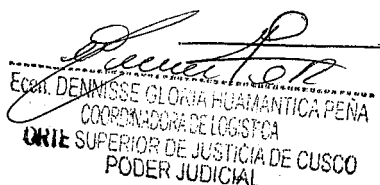 Econ. DENNISSE GLORIA HUAMANTICA PEÑA
COORDINADORA DE LOGISTICA
CORTE SUPERIOR DE JUSTICIA DE CUSCO
PODER JUDICIAL